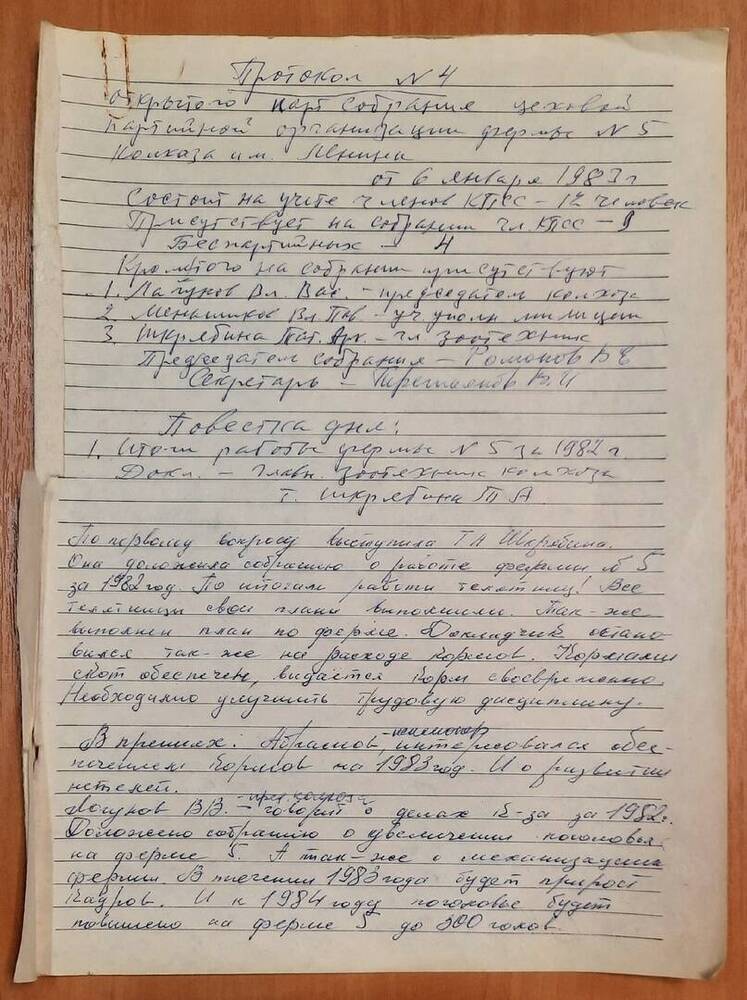 Протокол N 4
открытого парт собрания цеховой
партийной организации фермы N 5
Колхоза им. Ленина
от 6 января 1983 г
Состоит на учете членов КПСС - 12 человек
Присутствует на собрании чл. КПСС - 9
Беспартийных - 4
Кромтого на собрании присутствуют
1. Лагунов Вл. Вас. - председатель колхоза
2. Меньшиков Вл Пав - уч. уполн милиции
3. Шкрябина Тат. Арк. - гл зоотехник
Председатель собрания - Романов В Е
Секретарь - В. И
Повестка дня:
1. Итоги работы фермы N 5 за 1982 г.
Докл. - главн. зоотехник колхоза
т. Шкрябина Т А
По первому вопросу выступила Т А Шкрябина.
Она доложила собранию о работе фермы № 5
за 1982 год. По итогам работы телятниц! Все
телятницы свои планы выполнили. Так-же
выполнен план по ферме. Докладчик остано-
вился так-же на расходе кормов. Кормами
скот обеспечен, выдаётся корм своевременно.
Необходимо улучшить трудовую дисциплину.
В прениях: Абрамов, интересовался обес-
печением кормов на 1983 год. И о развитии
нетелей.
- пред. колхоза
Лагунов В.В. - говорит о делах к-за за 1982 г.
Доложено собранию о увеличении поголовья
на ферме 5. А так-же о механизации
фермы. В течении 1983 года будет прирост
кадров. И к 1984 году поголовье будет
повышено на ферме 5 до 300 голов.